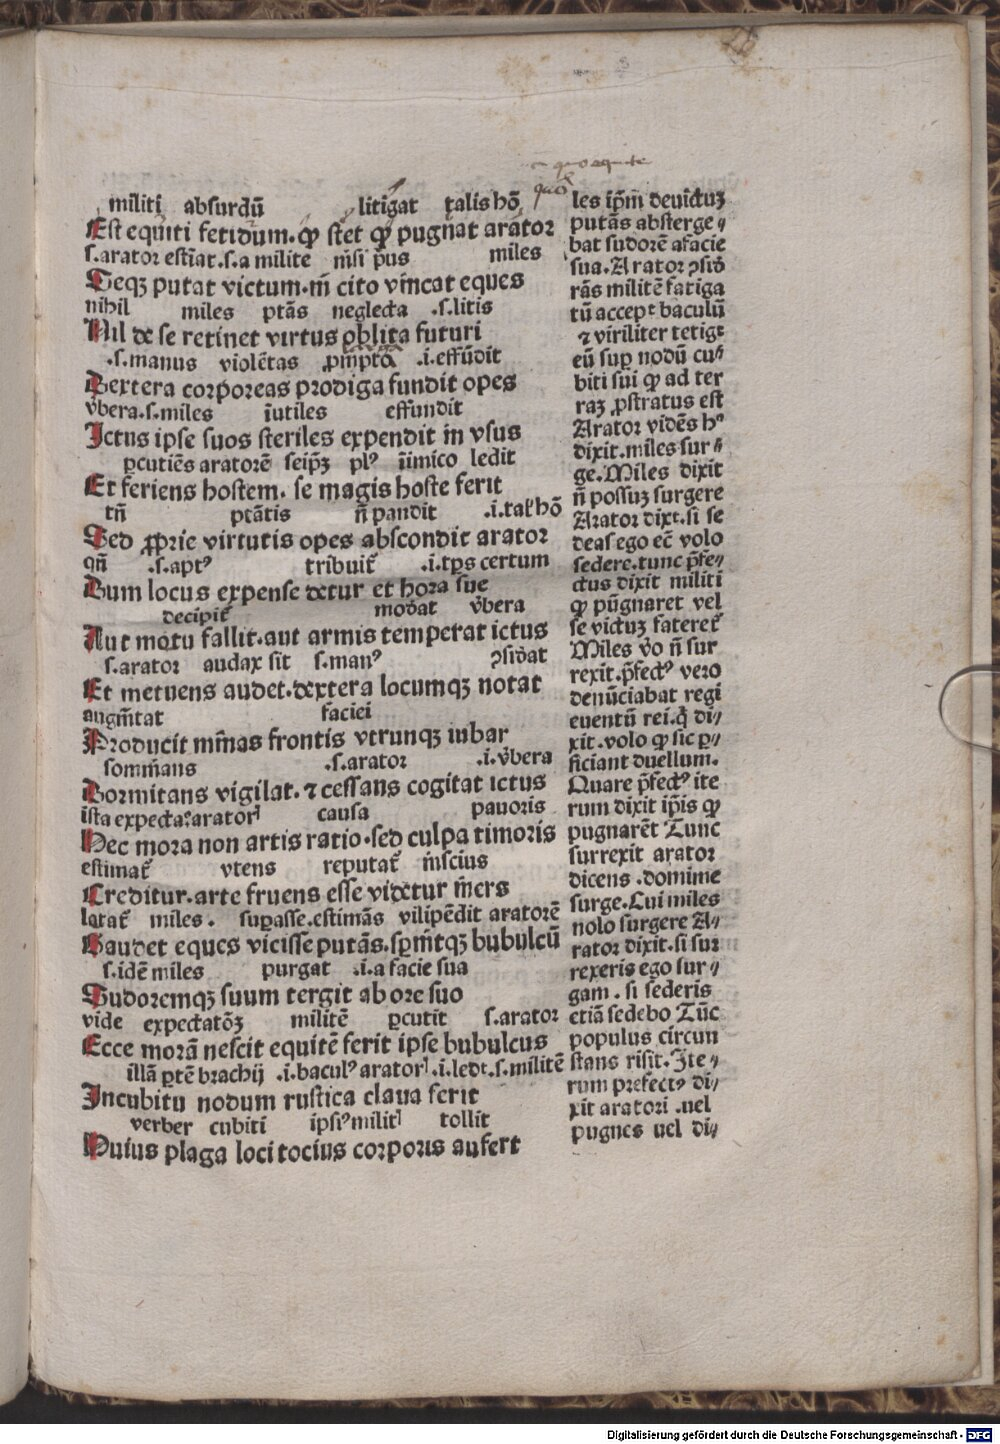 militi absurdū litigat talis hō
Est equiti fetidum. ꝙ stet ꝙ pugnat arator
s. arator estiat. s. a milite nisi pus miles
Seqꝫ putat victum. ni cito vincat eques
nihil miles ptās neglecta .s. litis
Nil de se retinet virtus oblita futuri
.s. manus violētas .i. effūdit
Dextera corporeas prodiga fundit opes
v̄bera. s. miles īutiles effundit
Ictus ipse suos steriles expendit in vsus
ꝑcutiēs aratorē seip̄ꝫ plꝰ īimico ledit
Et feriens hostem. se magis hoste ferit
tn̄ ptātis n̄ pandit .i. tal' hō
Sed ꝓprie virtutis opes abscondit arator
qn̄ .s. aptꝰ tribuit᷑ .i. tꝑs certum
Dum locus expense detur et hora sue
decipit᷑ mod̄at v̄bera
Aut motu fallit. aut armis temperat ictus
s. arator audax sit s. manꝰ ꝯsid̄at
Et metuens audet. dextera locumqꝫ notat
augm̄tat faciei
Producit minas frontis vtrunqꝫ iubar
somm̄ans .s. arator .i. v̄bera
Dormitans vigilat. ⁊ cessans cogitat ictus
ista expectaꝰ arator causa pauoris
Nec mora non artis ratio. sed culpa timoris
estimat᷑ vtens reputat᷑ inscius
Creditur. arte fruens esse videtur iners
latat᷑ miles. suꝑasse. estimās vilipēdit aratorē
Gaudet eques vicisse putās. spm̄itqꝫ bubulcū
s. idē miles purgat .i. a facie sua
Sudoremqꝫ suum tergit ab ore suo
vide expectatōꝫ militē ꝑcutit s. arator
Ecce morā nescit equitē ferit ipse bubulcus
illā ꝑtē brachij .i. baculꝰ arator .i. ledt. s. militē
Incubitu nodum rustica claua ferit
verber cubiti ipsiꝰ milit tollit
Huius plaga loci tocius corporis aufert
quo equite
les ip̄m deuictuꝫ
putās absterge⸗
bat sudorē afacie
sua. Arator ꝯsid̄
rās militē fatiga
tū accept baculū
⁊ viriliter tetigt
eū suꝑ nodū cu⸗
biti sui ꝙ ad ter
raꝫ ꝓstratus est
Arator vidēs hͦ
dixit. miles sur⸗
ge. Miles dixit
n̄ possuꝫ surgere
Arator dixt. si se
deas ego ec̄ volo
sedere. tunc p̄fe⸗
ctus dixit militi
ꝙ pūgnaret vel
se victuꝫ fateret᷑
Miles v̄o n̄ sur
rexit. p̄fectꝰ vero
denūciabat regi
euentū rei. q̄ di⸗
xit. volo ꝙ sic ꝑ⸗
ficiant duellum.
Quare p̄fectꝰ ite
rum dixit ip̄is ꝙ
pugnarēt Tunc
surrexit arator
dicens. domine
surge. Cui miles
nolo surgere A⸗
rator dixit. si sur
rexeris ego sur⸗
gam. si sederis
etiā sedebo Tūc
populus circun
stans risit. Ite⸗
rum prefectꝰ di⸗
xit aratori. uel
pugnes uel di⸗
Digitalisierung gefördert durch die Deutsche Forschungsgemeinschaft - DFG